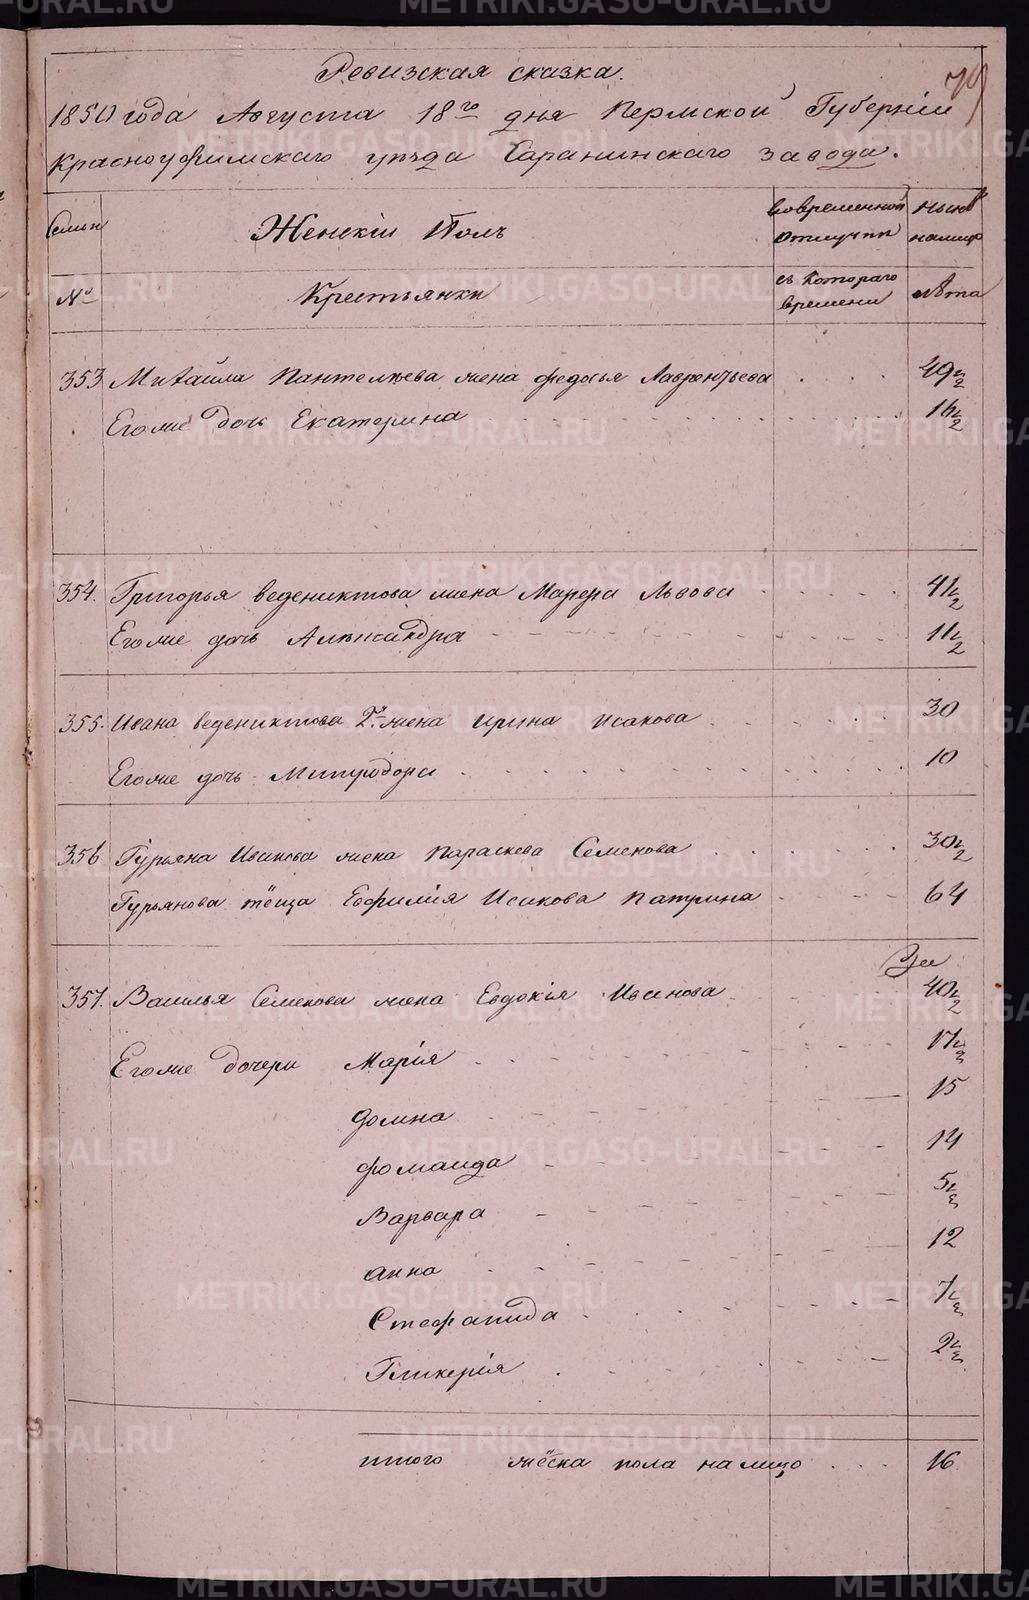 79
Ревизская сказка.
1850 года Августа 18го дня Пермской Губернiи
Красноуфимскаго уезда Саранинскаго завода.
Семьи Женскiй Полъ во временной отлучки ныне налицо
№ Крестьянки съ котораго времени лѣта
353 Михаила Пантелѣева жена федосья Лаврентьева 49½
Его же дочь Екатерина 16½
354. Григорья ведениктова жена Марфа Львова 41½
Его же дочь Александра 11½
355. Ивана ведениктова 2я жена ирина исакова 30
Его же дочь Митродора 10
356 Гурьяна Иванова жена параскева Семенова 30½
Гурьянова тёща Евфимiя Исакова патрина 64
357. Василья Семенова жена Евдокiя Иванова 40½
Его же дочери Марiя 17½
домна 15
фомаида 14
Варвара 5½
анна 12
Стефанида 7½
Гликерiя 2½
итого жёска пола на лицо 16
METRIKI.GASO-URAL.RU